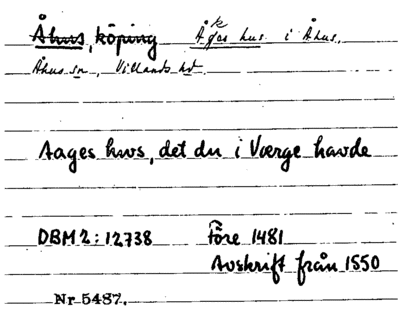 Åhus, köping Åkas hus i Åhus.
Åhus sn, Villands hd.
Aages hws, det du i Værge havde
DBM 2:12738 Före 1481
Avskrift från 1550
Nr 5487.